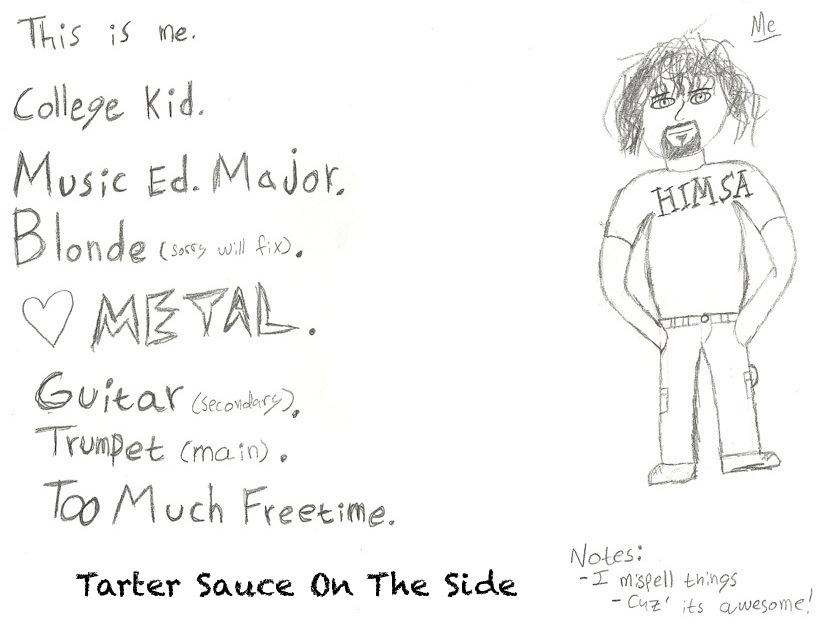 This is me.
Me
College Kid.
Music Ed. Major.
HIMSA
Blonde (sorry will fix).
♡ METAL.
Guitar (secondary).
Trumpet (main).
Too Much Freetime.
Notes:
- I mispell things
- Cuz' its awesome!
Tarter Sauce On The Side